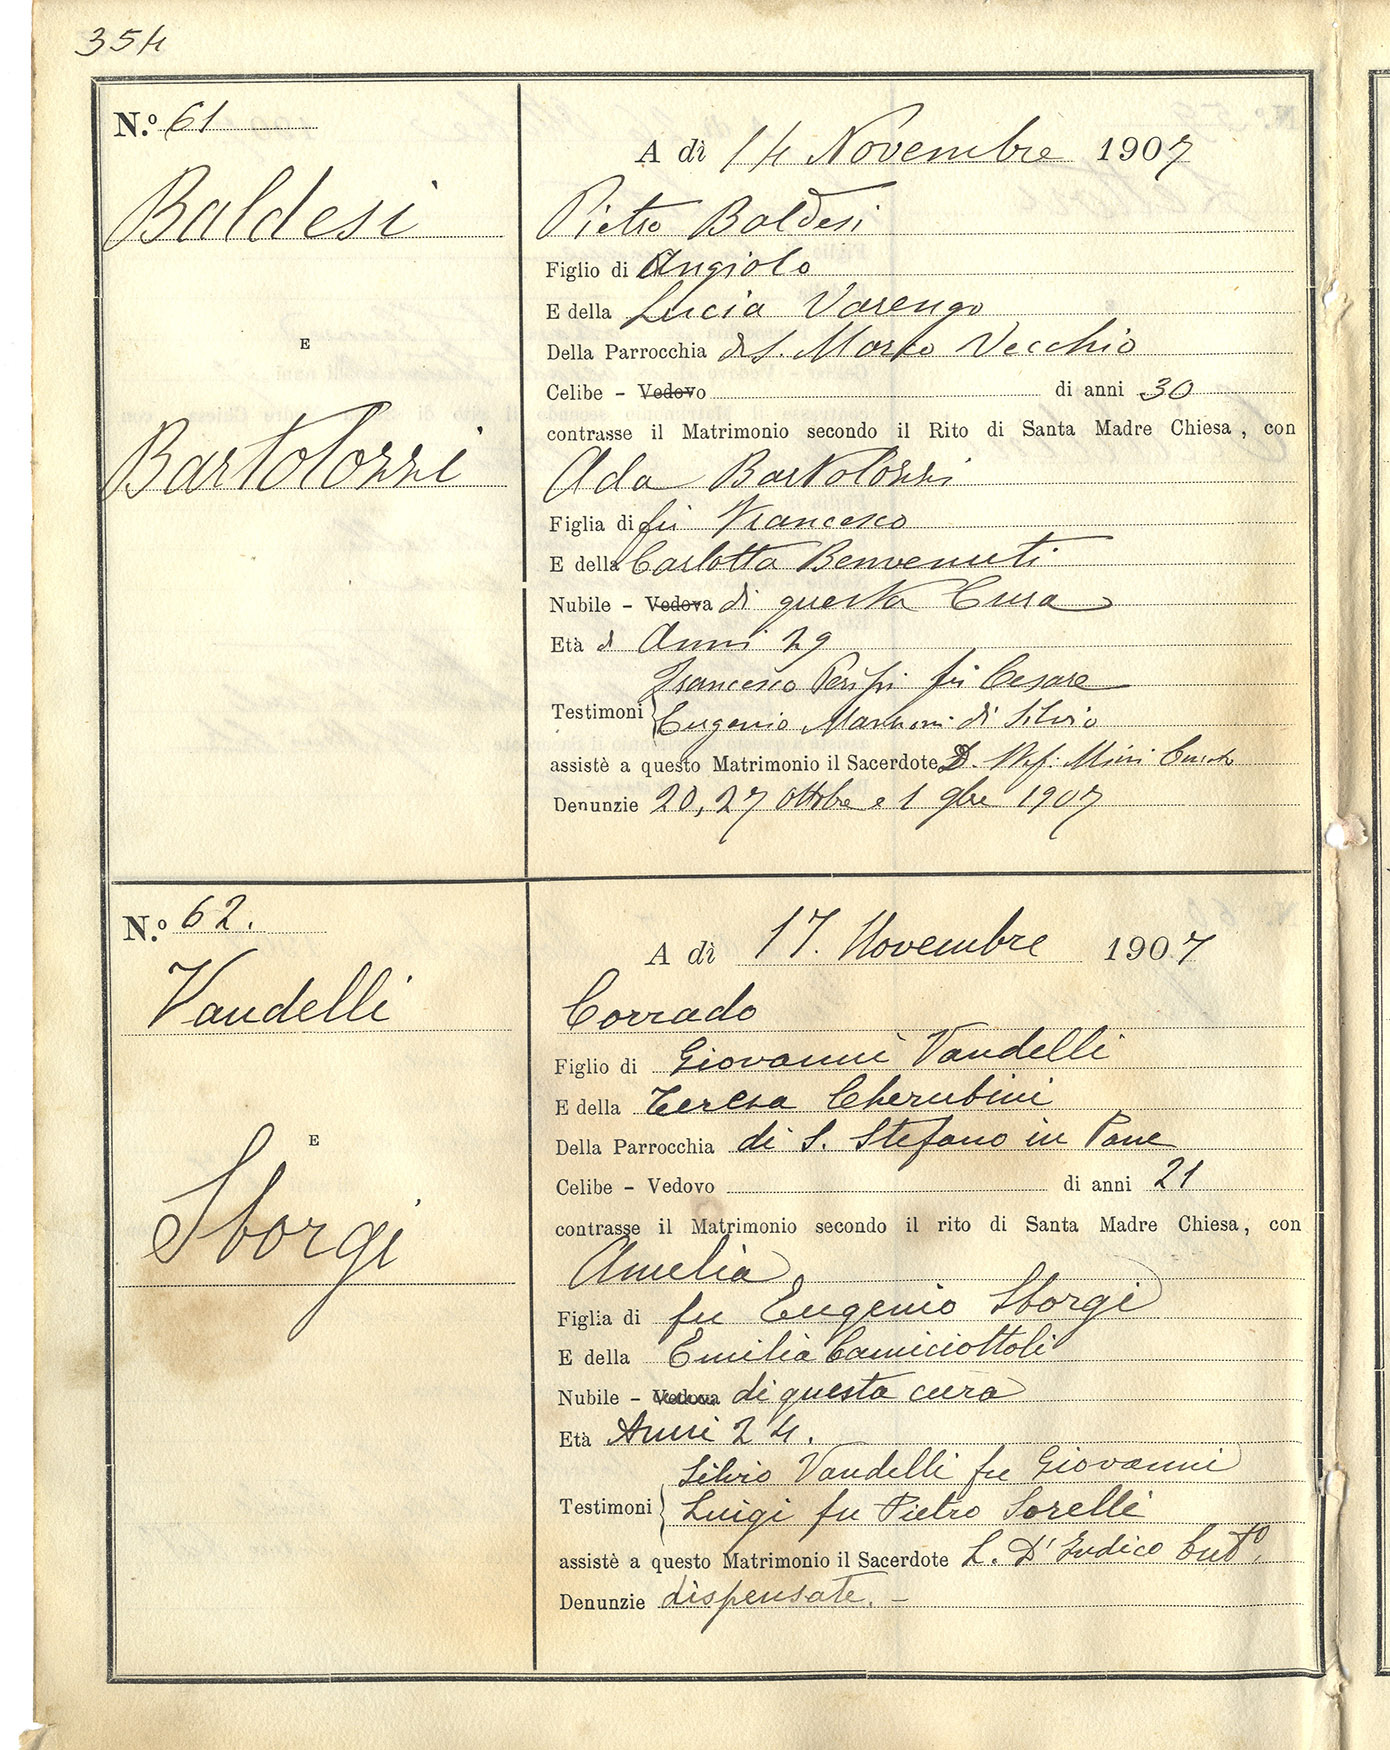 354
N.º 61
Baldesi
E
Bartolozzi
A dì 14 Novembre 1907
Pietro Baldesi
Figlio di Angiolo
E della Lucia Varengo
Della Parrocchia di S. Marco Vecchio
Celibe - Vedovo di anni 30
contrasse il Matrimonio secondo il Rito di Santa Madre Chiesa, con
Ada Bartolozzi
Figlia di fu Francesco
E della Carlotta Benvenuti
Nubile - Vedova di questa Cura
Età d Anni 29
Francesco fu Cesare
Testimoni { Eugenio di Silvio
assistè a questo Matrimonio il Sacerdote D. Mini
Denunzie 20, 27 Ottobre e 1 9bre 1907
N.º 62.
Vandelli
E
Sborgi
A dì 17. Novembre 1907
Corrado
Figlio di Giovanni Vandelli
E della Teresa Cherubini
Della Parrocchia di S. Stefano in Pane
Celibe - Vedovo di anni 21
contrasse il Matrimonio secondo il rito di Santa Madre Chiesa, con
Amelia
Figlia di fu Eugenio Sborgi
E della Emilia Camiciottoli
Nubile - Vedova di questa cura
Età Anni 24.
Silvio Vandelli fu Giovanni
Testimoni { Luigi fu Pietro Sorelli
assistè a questo Matrimonio il Sacerdote L. D'Indico Cutº.
Denunzie dispensate. -